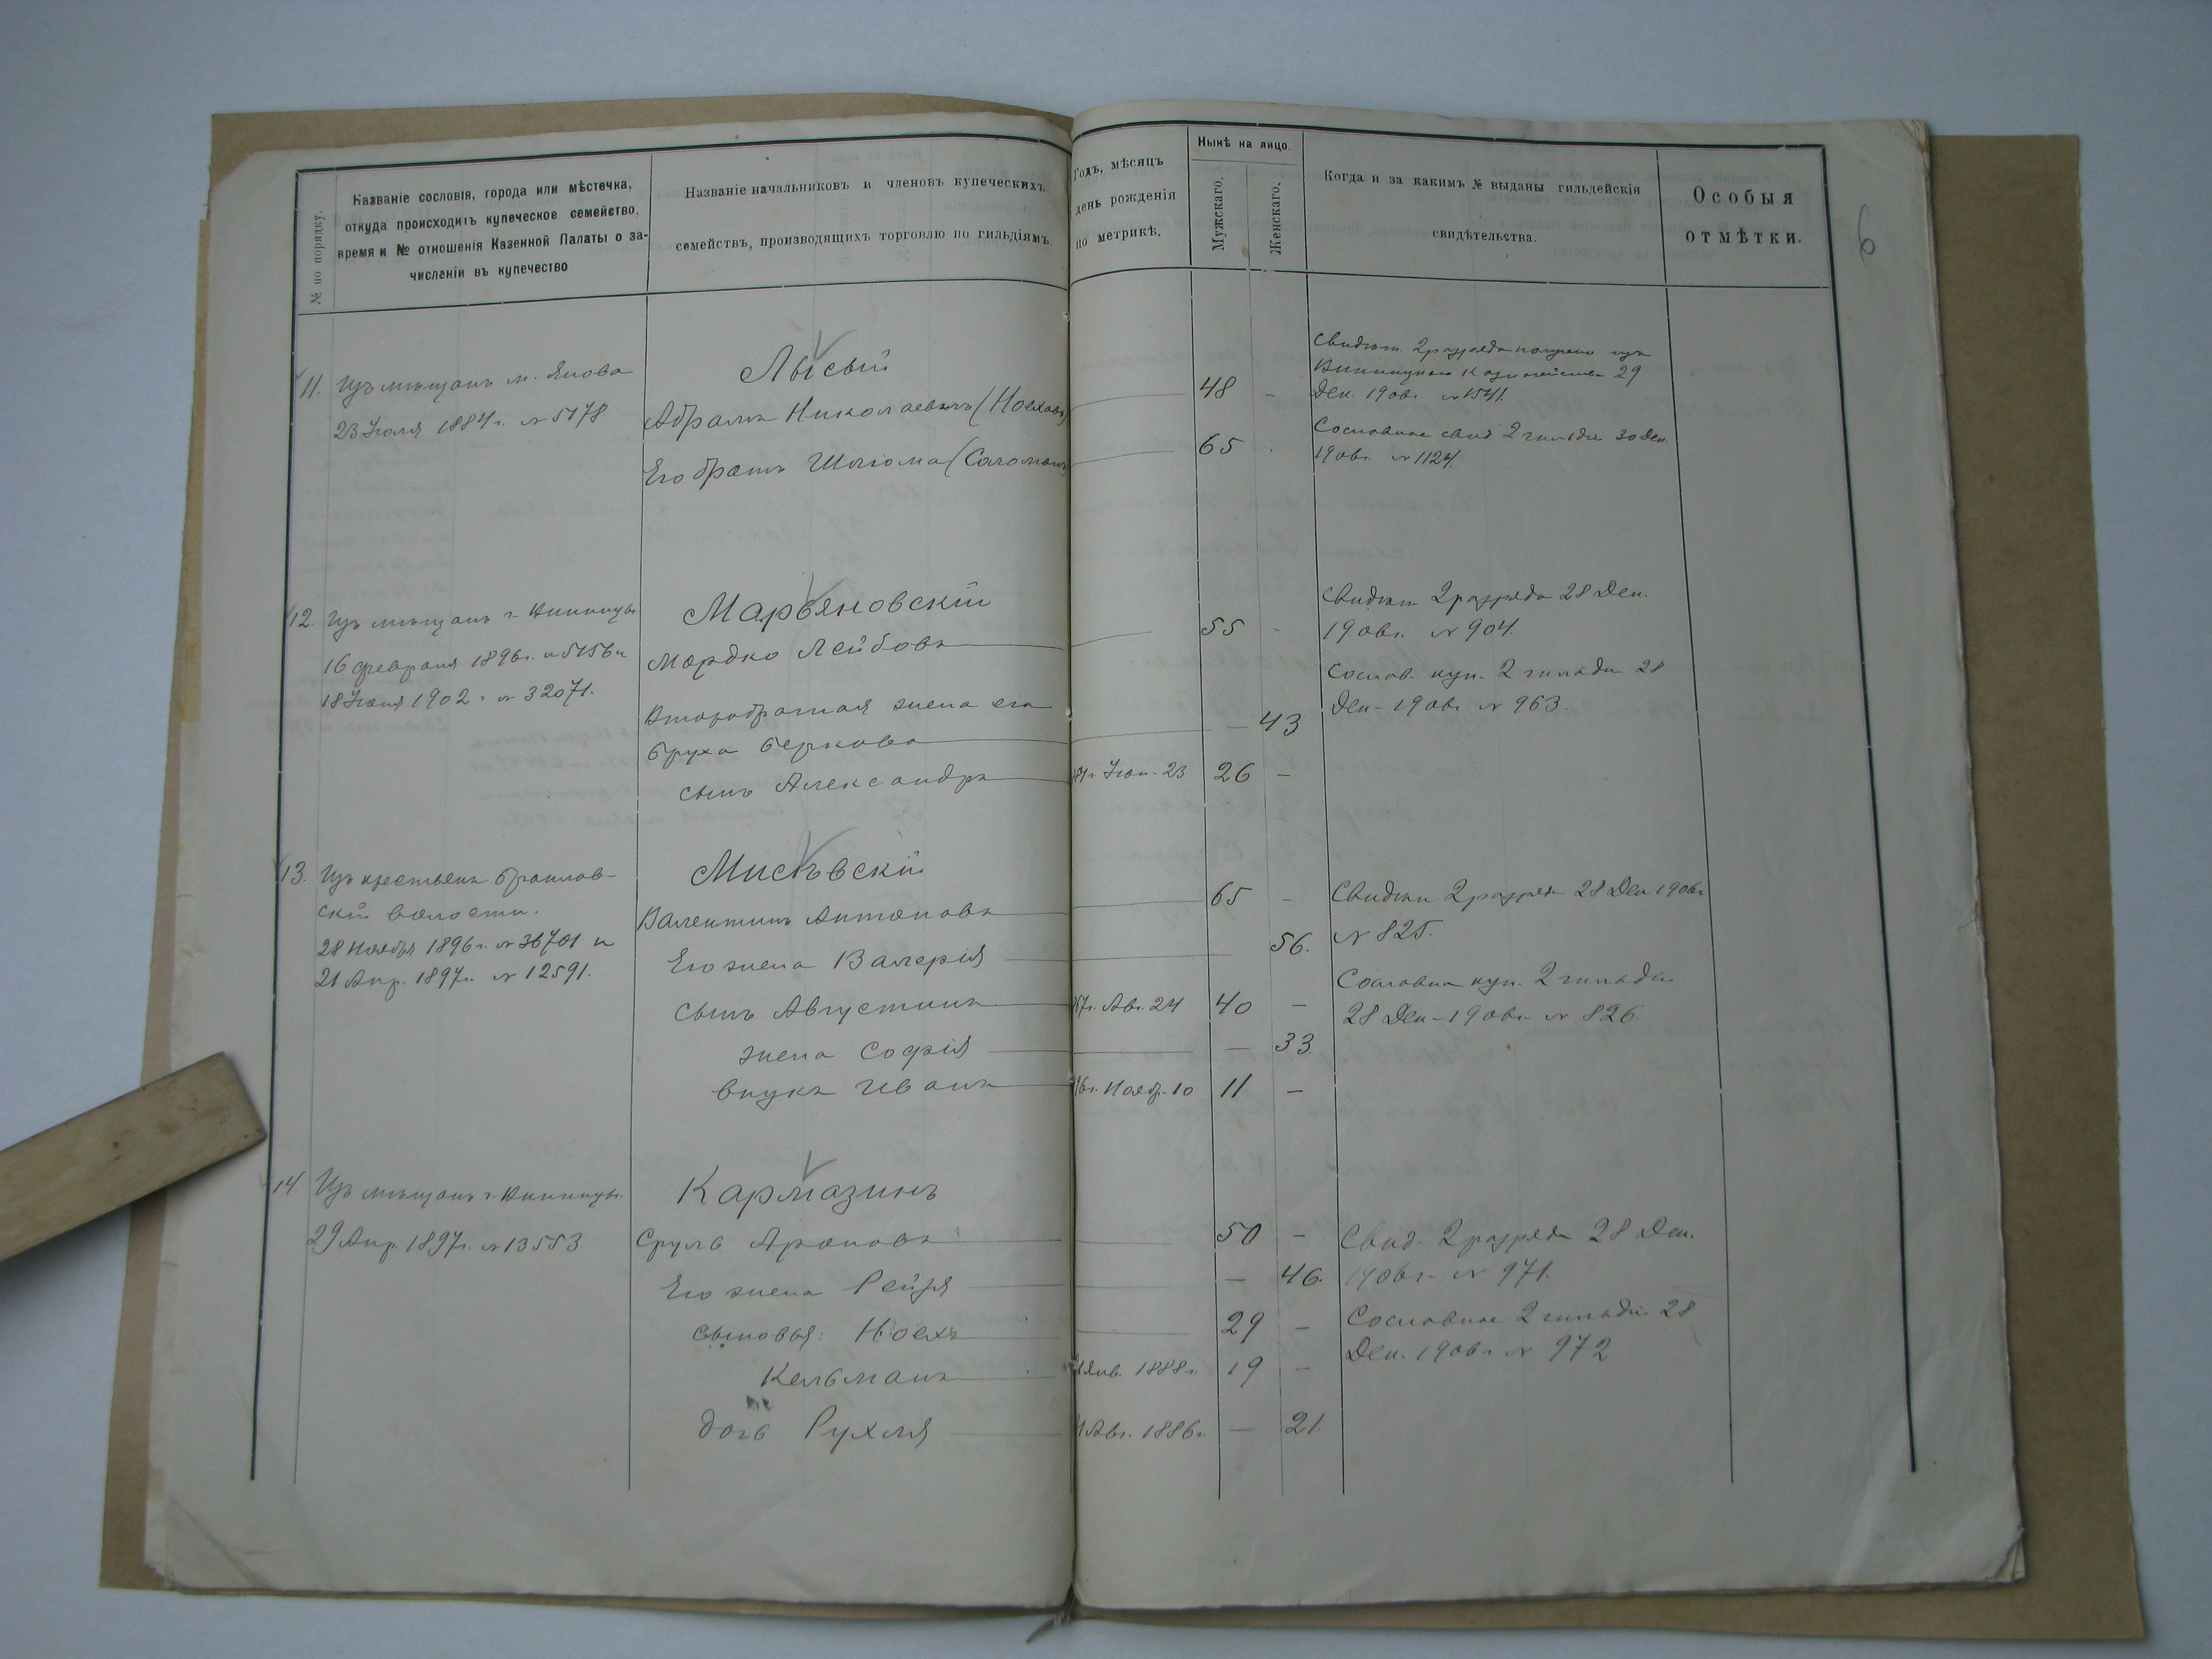 № по порядку.
Названіе сословія, города или мѣстечка,
откуда происходитъ купеческое семейство,
время и № отношенія Казенной Палаты о за-
численіи въ купечество
Названіе начальниковъ и членовъ купеческихъ
семействъ, производящихъ торговлю по гильдіямъ.
Годъ, мѣсяцъ
день рожденія
по метрикѣ.
Нынѣ на лицо.
Мужскаго.
Женскаго.
Когда и за какимъ № выданы гильдейскія
свидѣтельства.
Особыя
отмѣтки.
6
11. Изъ мѣщанъ м. Янова
23 Іюля 1884 г. № 5178
Лысый
Абрамъ Николаевъ (Ноеховъ)
48 -
Его братъ Шлёма (Соломонъ)
65
Свидѣт. 2 разряда получено изъ
Винницкаго Казначейства 29
Дек. 1906г. № 1541.
Сословное свид 2 гильдіи 30 Дек.
1906г. № 1124.
12. Изъ мѣщанъ г. Винницы
16 февраля 1896г. № 5156 и
18 Іюня 1902 г № 32071.
Марьяновскій
Мордко Лейбовъ
55 -
Второбрачная жена его
Бруха Беркова
— 43
сынъ Александръ
Іюн. 23 26 —
Свидѣт. 2 разряда 28 Дек.
1906г. № 904.
Сослов. куп. 2 гильди 28
Дек. 1906г № 963.
13. Изъ крестьянъ Браилов-
скій волости.
28 Ноября 1896г. № 36701 и
21 Апр. 1897г. № 12591.
Мисѣвскій
Валентинъ Антоновъ
65 -
Его жена Валерія
56.
сынъ Августинъ
67г. Авг. 24 40 —
жена Софія
— 33
внукъ Иванъ
96г. Ноябр. 10 11 —
Свидѣт 2 разряд 28 Дек 1906г
№ 825.
Сословн куп. 2 гильди
28 Дек. 1906г № 826
14. Изъ мѣщанъ г. Винницы.
29 Апр. 1897г. № 13553
Кармазинъ
Сруль Ароновъ
50 —
Его жена Рейзя
— 46.
сыновья: Ноехъ
29 —
Кельманъ
Янв. 1888г. 19 —
дочь Рухля
Авг. 1886г. — 21.
Свид. 2 разряд 28 Дек.
1906г. № 971.
Сословное 2 гильди 28
Дек. 1906г № 972